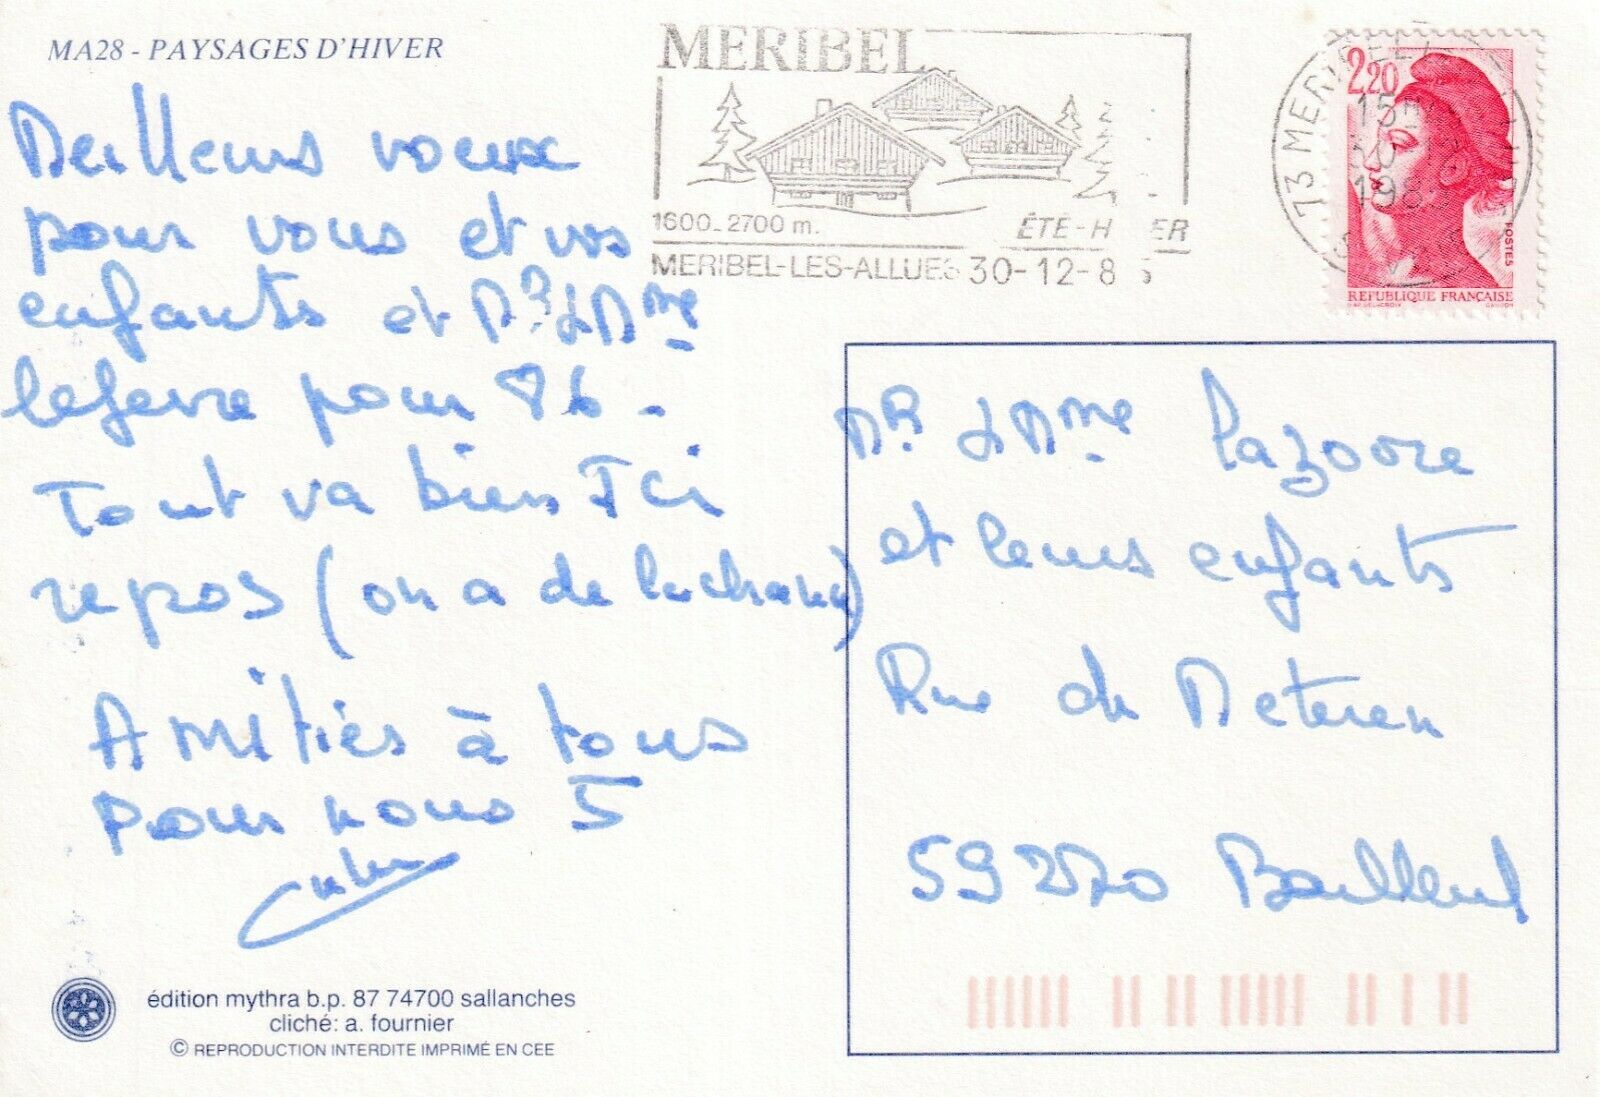 MA28 - PAYSAGES D'HIVER
Meilleurs voeux
pour vous et vos
enfants et Mr & Mme
Lefevre pour 86.
Tout va bien Ici
repos (on a de la chance)
Amitiés à tous
pour nous 5
MERIBEL
1600_2700 m.
ÉTÉ-H ER
MERIBEL-LES-ALLUES 30-12-8
73 MERIBEL
15
198
2,20
POSTES
REPUBLIQUE FRANÇAISE
Mr & Mme
et leurs enfants
Rue de Meteren
59270 Bailleul
édition mythra b.p. 87 74700 sallanches
cliché: a. fournier
© REPRODUCTION INTERDITE IMPRIMÉ EN CEE